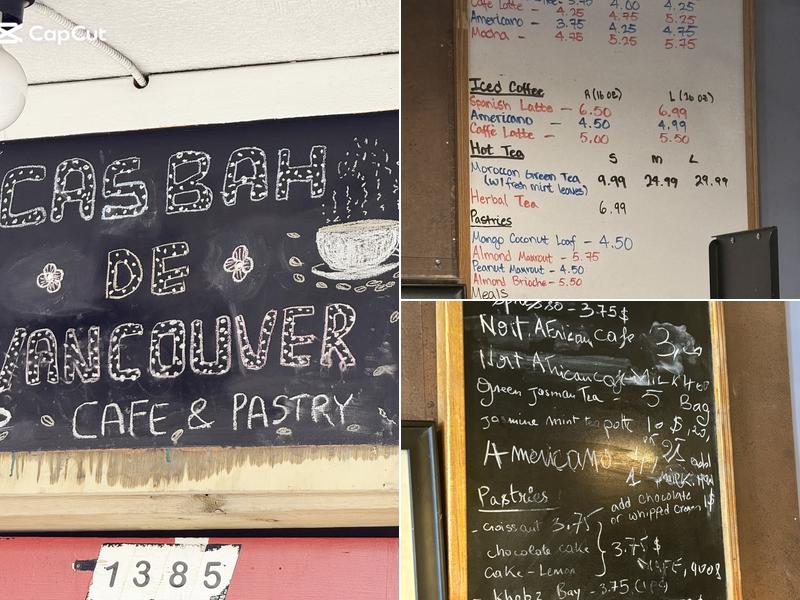 CapCut
CASBAH
DE
VANCOUVER
CAFE & PASTRY
1385
Caffe Latte - 4.25 4.75 5.25
Americano - 3.75 4.25 4.75
Mocha - 4.75 5.25 5.75
Iced Coffee R(16 oz) L(26 oz)
Spanish Latte - 6.50 6.99
Americano - 4.50 4.99
Caffe Latte - 5.00 5.50
Hot Tea S M L
Moroccan Green Tea 9.99 24.99 29.99
(w/fresh mint leaves)
Herbal Tea 6.99
Pastries
Mango Coconut Loaf - 4.50
Almond Maxrout - 5.75
Peanut Maxrout - 4.50
Almond Brioche - 5.50
Meals
- 3.75$
Nort African Cafe
Nort African Caf Milk
Green Jasman Tea - 5 Bag
Jasmine mint tea pott 10$
Americano
Pastries
add chocolate
or whipped cream 1$
- croissant 3.75
chocolate cake 3.75$
Cake - Lemon
Khobz Bay - 3.75